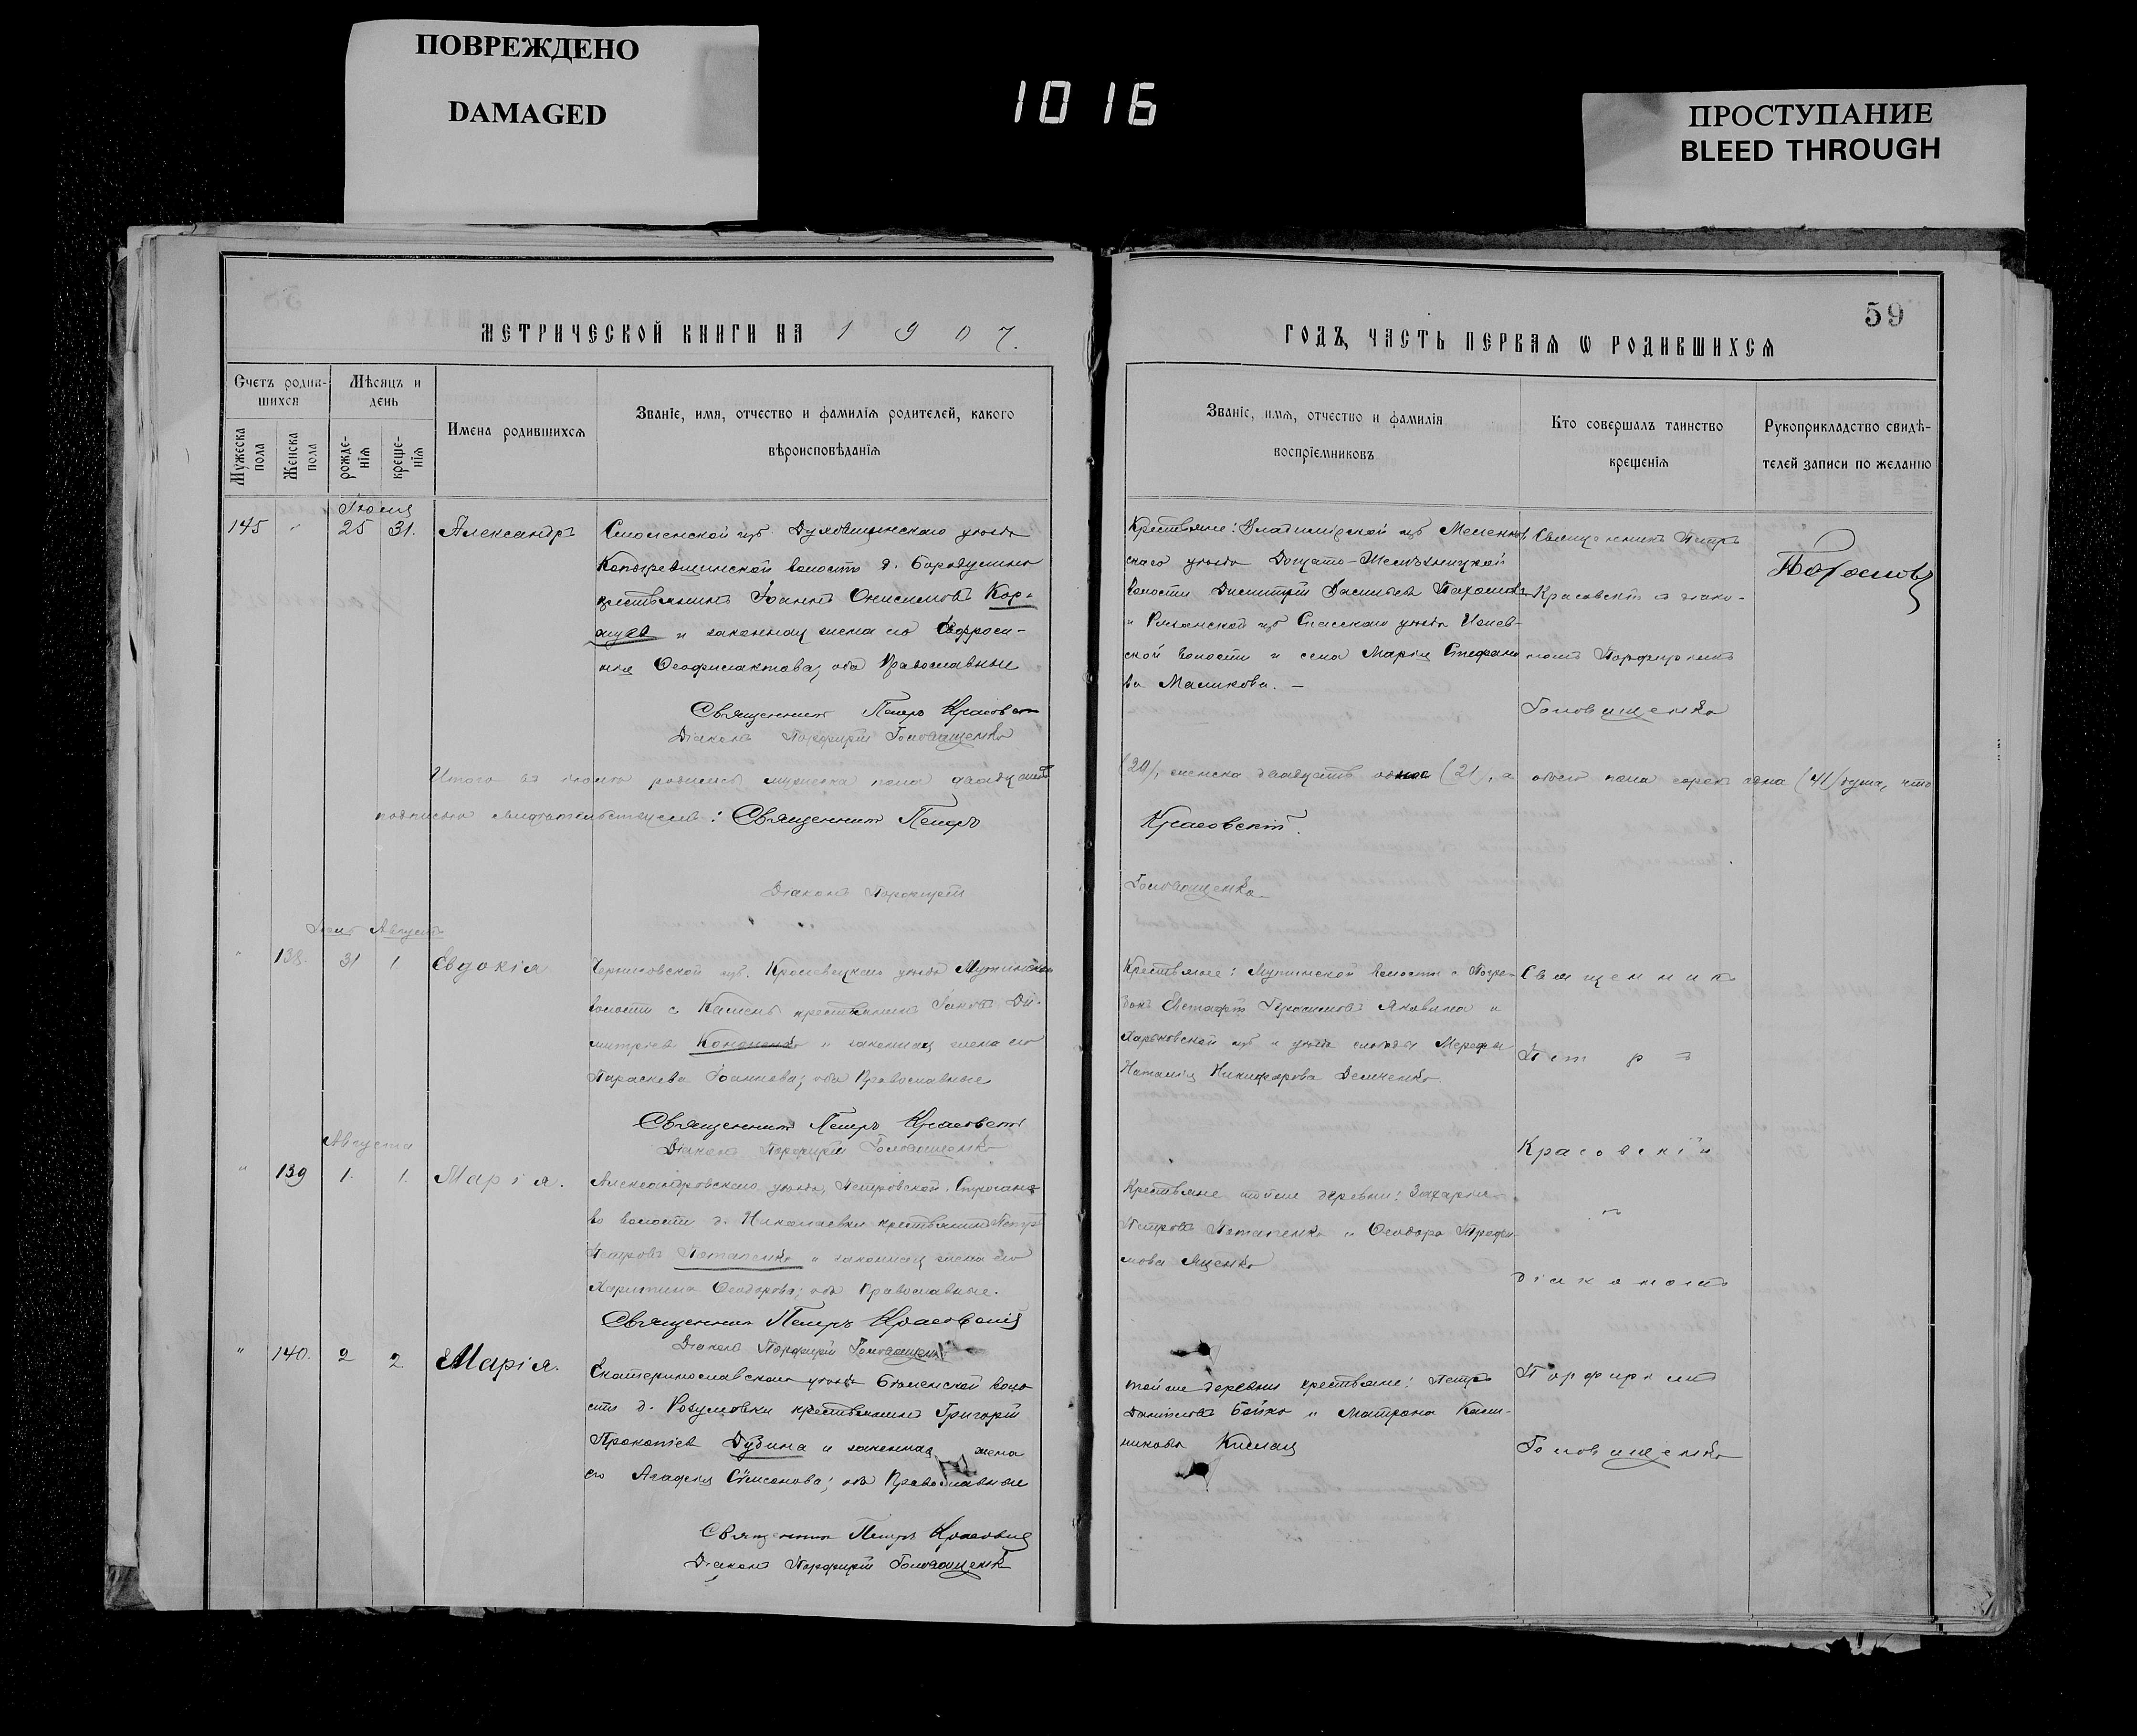 ПОВРЕЖДЕНО
DAMAGED
1016
ПРОСТУПАНИЕ
BLEED THROUGH
59
МЕТРИЧЕСКОЙ КНИГИ НА 1907.
ГОДЪ, ЧАСТЬ ПЕРВАѦ Ѡ РОДИВШИХСѦ
Счетъ родив-
шихся
Мужеска пола
Женска пола
Мѣсяцъ и
день
рожде-
нія
креще-
нія
Имена родившихсѧ
Званіе, имѧ, отчество и фамиліѧ родителей, какого
вѣроисповѣданіѧ
Званіе, имѧ, отчество и фамиліѧ
воспріемниковъ
Кто совершалъ таинство
крещеніѧ
Рукоприкладство свидѣ-
телей записи по желанію
Іюля
145 " 25 31. Александръ
Смоленской губ. Духовщинскаго уѣзда
волости д. Бородулино
крестьянинъ Іоаннъ Онисимовъ Кор-
и законная жена его Евфроси-
нія Ѳеофилактова; оба Православные
Священникъ Петръ Красовскій
Діаконъ Порфирій Головащенко
Крестьяне: Владимірской губ Меленков
скаго уѣзда
волости Димитрій Васильевъ
и Рязанской губ Спасскаго уѣзда
ской волости и села Марія Стефано
ва Маликова. –
Священникъ Петръ
Красовскій съ діако-
номъ Порфиріемъ
Головащенко
Итого въ родилось мужеска пола двадцать
(20), женска двадцать одна (21), а обоего пола сорокъ одна (41) душа, что
подписью свидѣтельствуемъ: Священникъ Петръ
Красовскій.
Діаконъ Порфирій
Головащенко
Іюль Августъ
" 138. 31 1 Евдокія
Черниговской губ. Кролевецкаго уѣзда Мутинской
волости с Камень крестьянинъ Іаковъ Ди-
митріевъ Кондиенко и законная жена его
Параскева Іоаннова; оба Православные
Священникъ Петръ Красовскій
Діаконъ Порфирій Головащенко
Крестьяне: Мутинской волости
Евстафій Герасимовъ Яковина и
Харьковской губ и уѣзда слободы Мерефы
Наталія Никифорова Демченко
Священникъ
Петръ
Красовскій
Августа
" 139 1. 1. Марія.
Александровскаго уѣзда, Петровской-Строгано
во волости д. Николаевки крестьянинъ Петръ
Петровъ Потапенко и законная жена его
Харитина Ѳеодорова; оба Православные.
Священникъ Петръ Красовскій
Діаконъ Порфирій Головащенко
Крестьяне той же деревни: Захарія
Петровъ Потапенко и Ѳеодора Трофи-
мова Яценко
съ
діакономъ
" 140. 2 2 Марія.
Екатеринославскаго уѣзда волос
сти д. Розумовки крестьянинъ Григорій
Прокопіевъ Дубина и законная жена
его Агафія Симонова; оба Православные
Священникъ Петръ Красовскій
Діаконъ Порфирій Головащенко
той же деревни крестьяне: Петръ
Даниловъ Бойко и Матрона
никова
Порфиріемъ
Головащенко